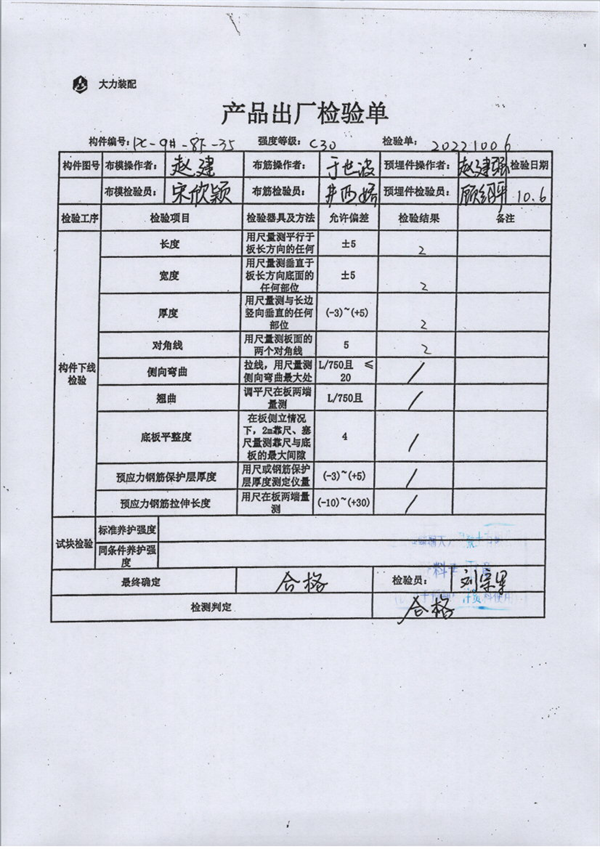 大力装配
产品出厂检验单
构件编号: PC-9#-8F-35 强度等级: C30 检验单: 20221006
构件图号 布模操作者: 赵建 布筋操作者: 于世波 预埋件操作者: 赵建强 检验日期
布模检验员: 宋欣颖 布筋检验员: 预埋件检验员: 10.6
检验工序 检验项目 检验器具及方法 允许偏差 检验结果 备注
构件下线检验
长度 用尺量测平行于板长方向的任何 ±5 2
宽度 用尺量测垂直于板长方向底面的任何部位 ±5 2
厚度 用尺量测与长边竖向垂直的任何部位 (-3)~(+5) 2
对角线 用尺量测板面的两个对角线 5 2
侧向弯曲 拉线，用尺量测侧向弯曲最大处 L/750且 ≤20 /
翘曲 调平尺在板两端量测 L/750且 /
底板平整度 在板侧立情况下，2m靠尺、塞尺量测靠尺与底板的最大间隙 4 /
预应力钢筋保护层厚度 用尺或钢筋保护层厚度测定仪量 (-3)~(+5) /
预应力钢筋拉伸长度 用尺在板两端量测 (-10)~(+30) /
试块检验 标准养护强度
同条件养护强度
最终确定 合格 检验员:
检测判定 合格